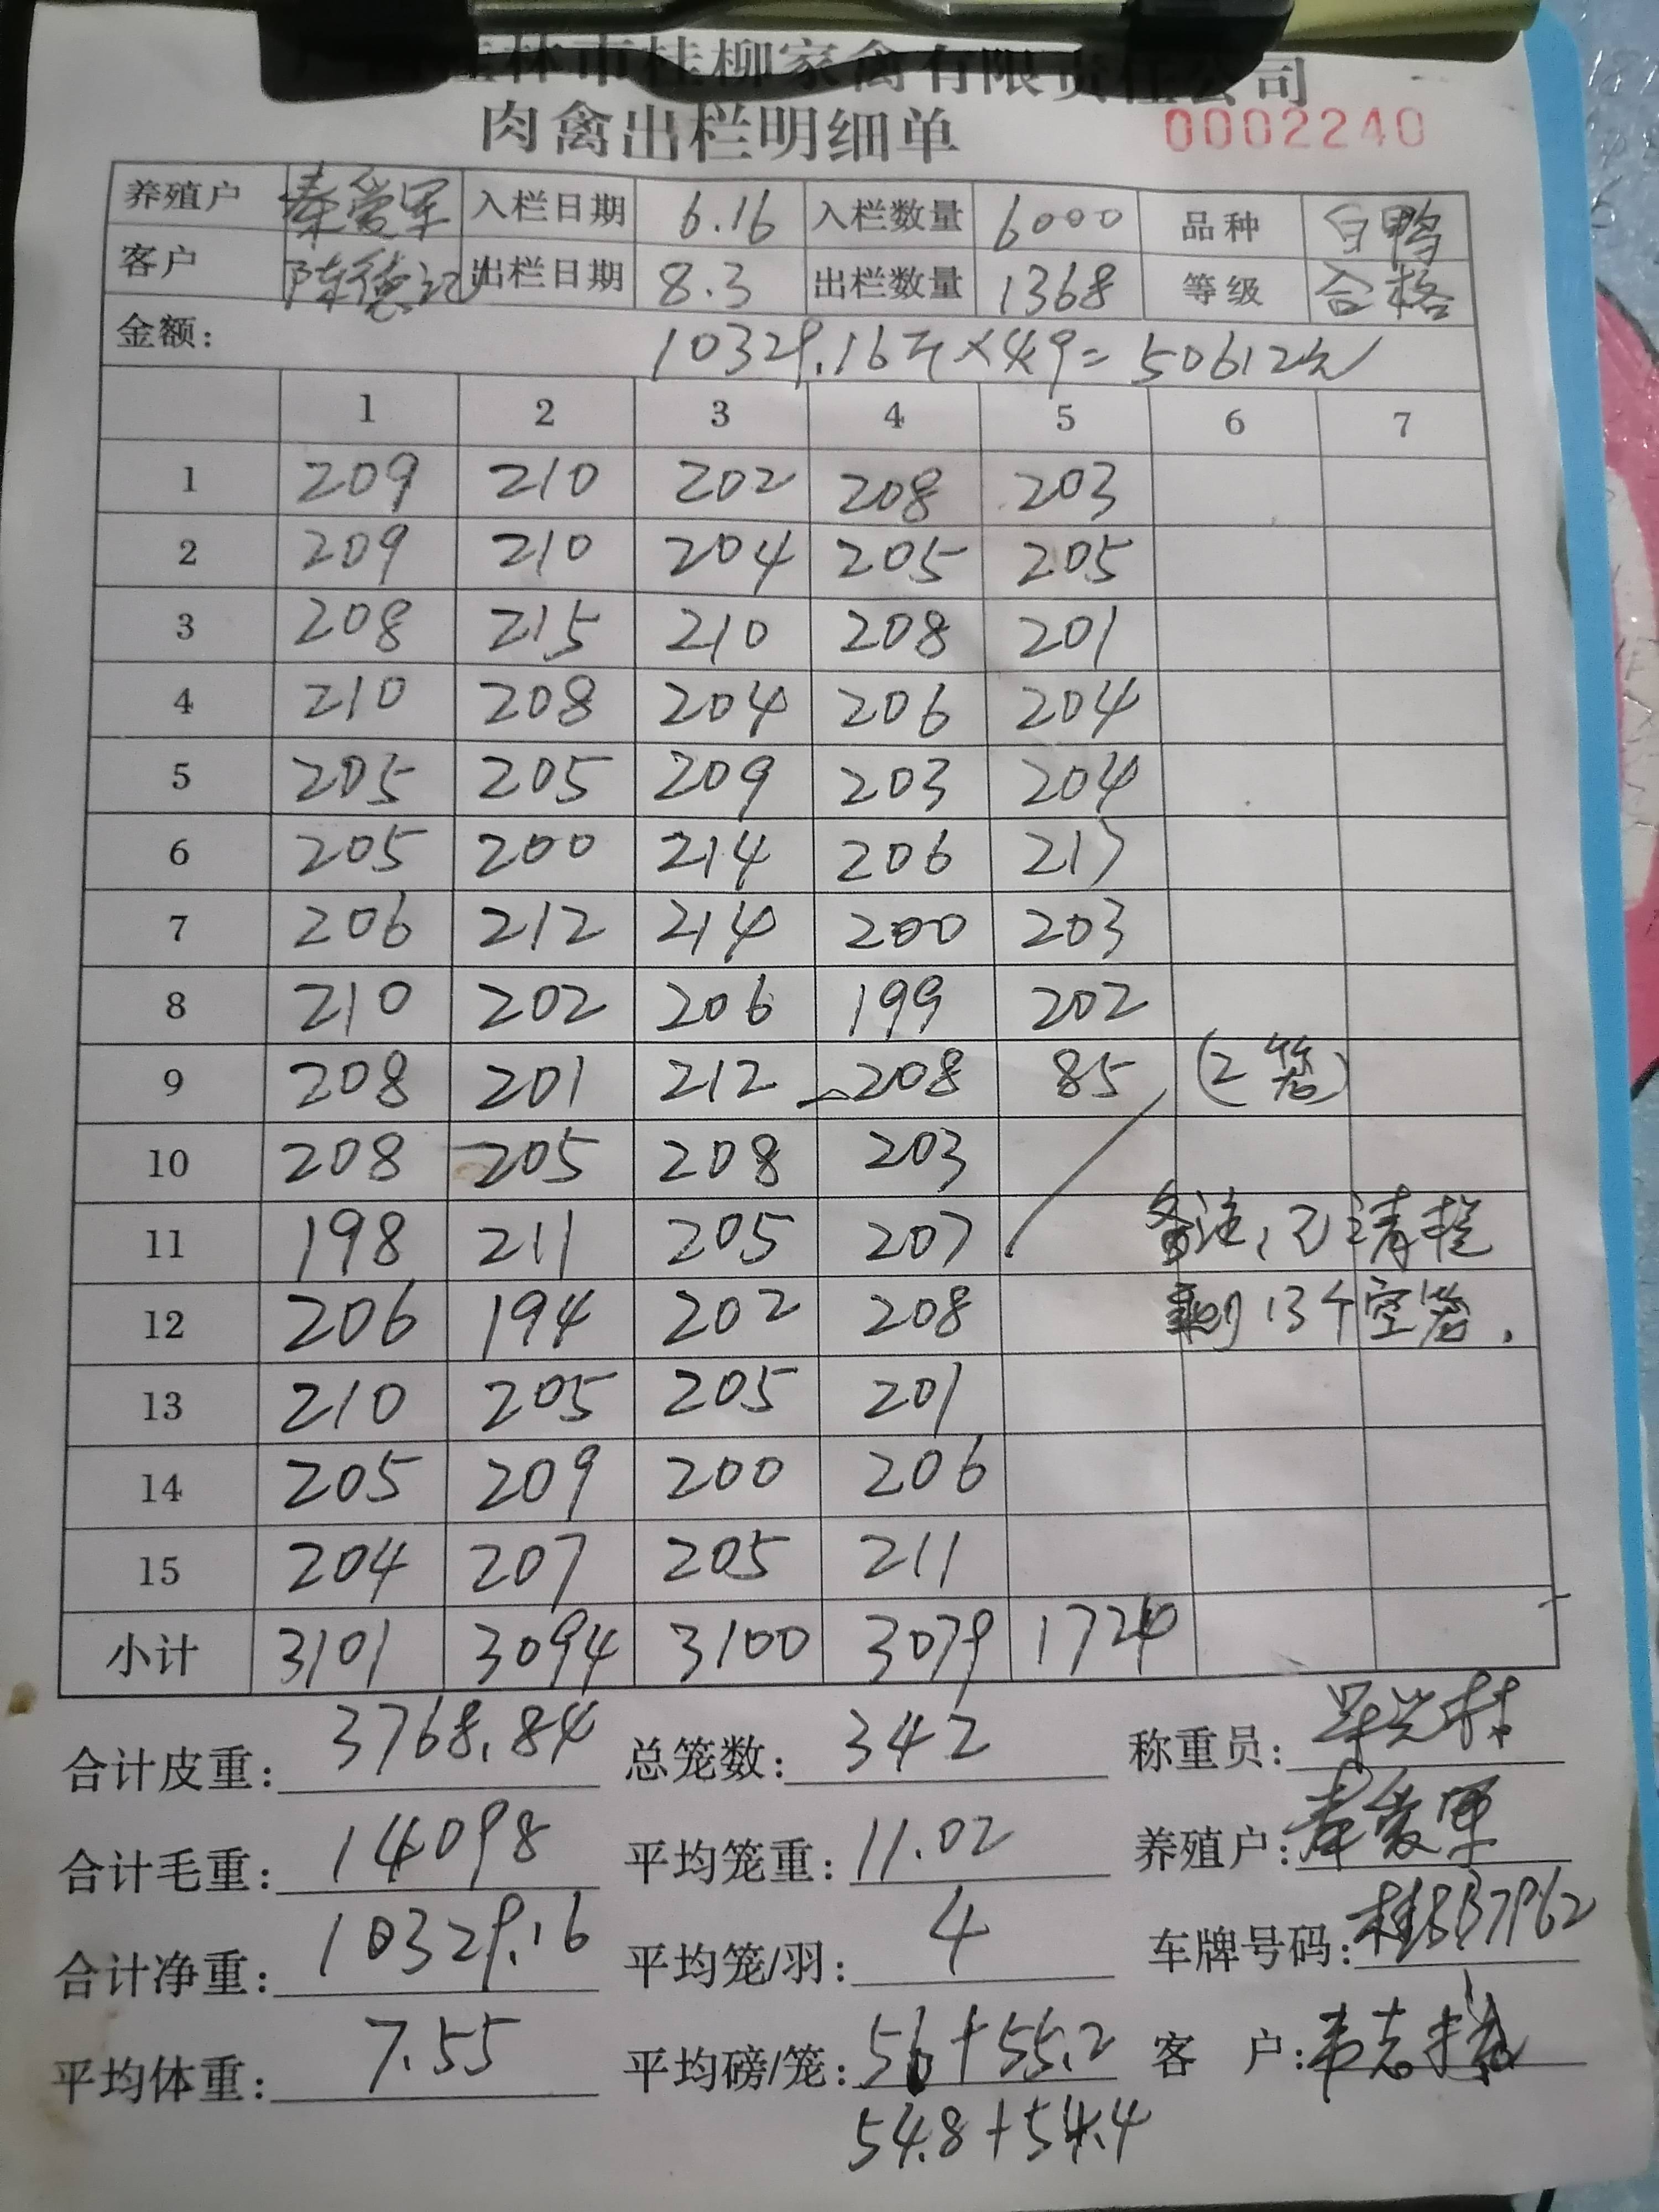 林市桂柳家禽有限责任公司
肉禽出栏明细单 0002240
养殖户 秦爱军 入栏日期 6.16 入栏数量 6000 品种 白鸭
客户 陈德记 出栏日期 8.3 出栏数量 1368 等级 合格
金额: 10329.16斤×4.9=50612元
1 2 3 4 5 6 7
1 209 210 202 208 203
2 209 210 204 205 205
3 208 215 210 208 201
4 210 208 204 206 204
5 205 205 209 203 204
6 205 200 214 206 217
7 206 212 214 200 203
8 210 202 206 199 202
9 208 201 212 208 85 (2笼)
10 208 205 208 203
11 198 211 205 207 备注,已清栏
12 206 194 202 208 剩13个空笼.
13 210 205 205 201
14 205 209 200 206
15 204 207 205 211
小计 3101 3094 3100 3079 1724
合计皮重: 3768.84 总笼数: 342 称重员:
合计毛重: 14098 平均笼重: 11.02 养殖户: 秦爱军
合计净重: 10329.16 平均笼/羽: 4 车牌号码:
平均体重: 7.55 平均磅/笼: 56+55.2 客 户:
54.8+54.4